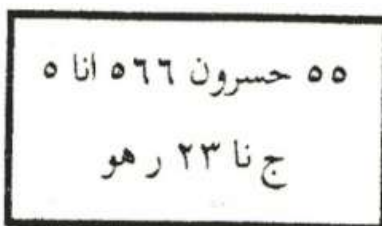 ٥٥ حسرون ٥٦٦ انا ٥
ج نا ٢٣ ر هو